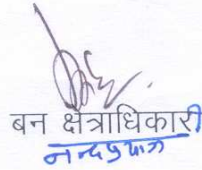 बन क्षेत्राधिकारी
नन्दप्रयाग